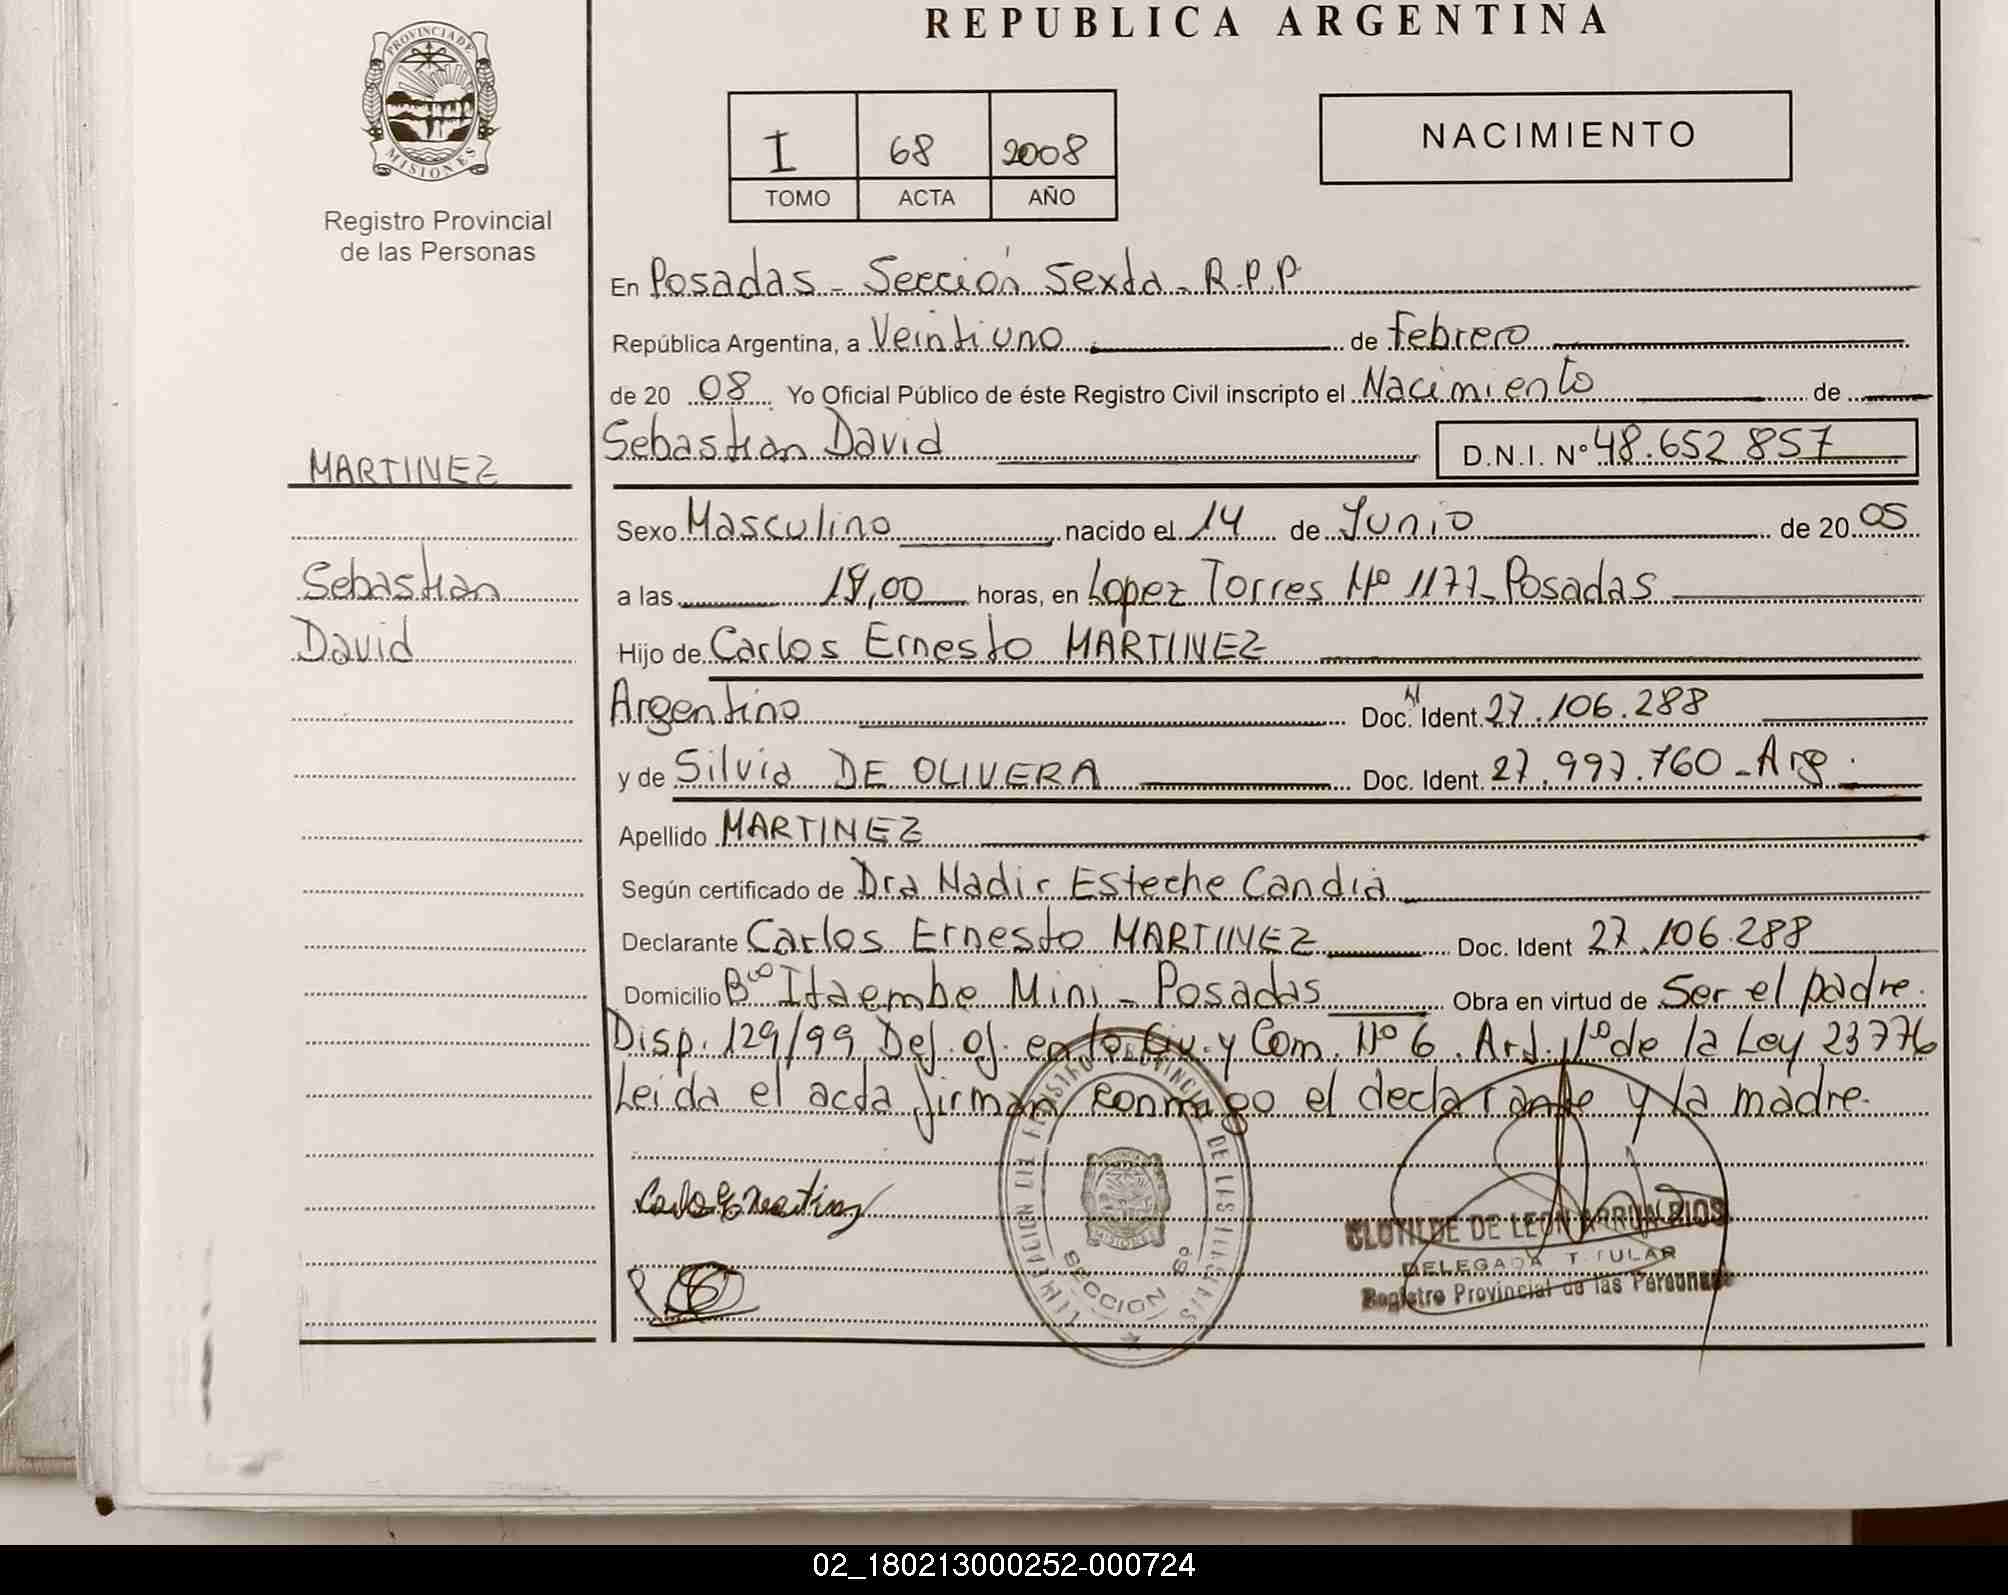 REPUBLICA ARGENTINA
PROVINCIA DE
MISIONES
Registro Provincial
de las Personas
I 68 2008
TOMO ACTA AÑO
NACIMIENTO
En Posadas - Sección Sexta - R.P.P
República Argentina, a Veintiuno de febrero
de 20 08 Yo Oficial Público de éste Registro Civil inscripto el Nacimiento de
Sebastian David D.N.I. Nº 48.652 857
MARTINEZ
Sexo Masculino nacido el 14 de Junio de 20 05
Sebastian
a las horas, en Lopez Torres Nº 1177 - Posadas
David
Hijo de Carlos Ernesto MARTINEZ
Argentino Doc. Ident. 27.106.288
y de Silvia DE OLIVERA Doc. Ident. 27.997.760 - Arg.
Apellido MARTINEZ
Según certificado de Dra Nadir Esteche Candia
Declarante Carlos Ernesto MARTINEZ Doc. Ident 27.106.288
Domicilio Bco Itaembe Mini - Posadas Obra en virtud de Ser el padre.
Disp. 129/99 Def. of. en lo Civ. y Com. Nº 6. Art. 1º de la Ley 23776
Leida el acta firman conmigo el declarante y la madre.
SECCION 6º
CLOTILDE DE LEON ARRUA RIOS
DELEGADA TITULAR
Registro Provincial de las Personas
02_180213000252-000724